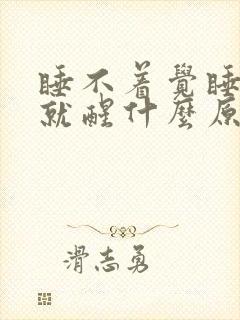 睡不着覺睡
就醒什麼原
滑志勇